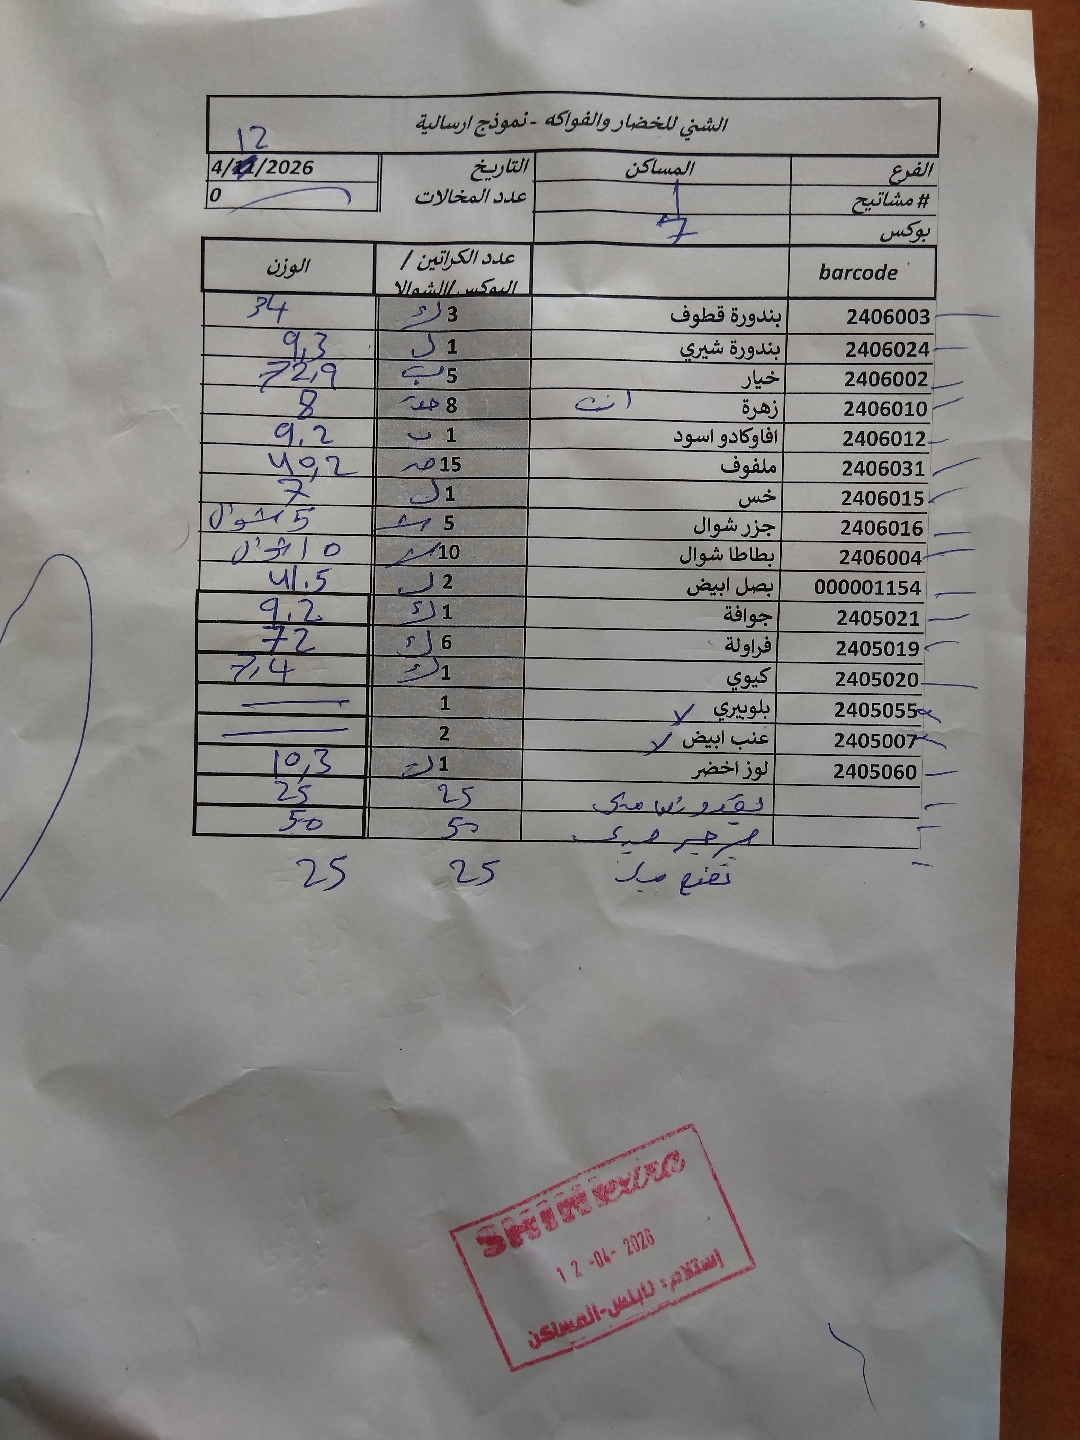 الشني للخضار والفواكه - نموذج ارسالية
12
الفرع المساكن التاريخ 4/11/2026
# مشاتيح 1 عدد المخالات 0
بوكس 7
barcode عدد الكراتين / البوكس/الشوالا الوزن
2406003 بندورة قطوف 3 ك 34
2406024 بندورة شيري 1 ل 9,3
2406002 خيار 5 ب 72,9
2406010 زهرة 8 8
2406012 افاوكادو اسود 1 ب 9,2
2406031 ملفوف 15 40,2
2406015 خس 1 ل 7
2406016 جزر شوال 5 5 شوال
2406004 بطاطا شوال 10 10 شوال
000001154 بصل ابيض 2 ل 41.5
2405021 جوافة 1 ك 9.2
2405019 فراولة 6 ك 72
2405020 كيوي 1 ك 7,4
2405055 بلوبيري لا 1
2405007 عنب ابيض لا 2
2405060 لوز اخضر 1 ك 10,3
25 25
50 50
25 25
SHINI extra
12-04-2026
إستلام: نابلس-المساكن